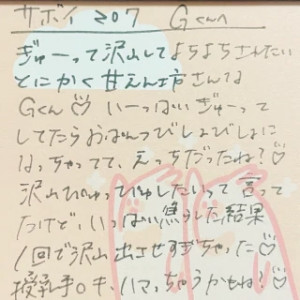 サボイ 207 Gくんへ
ぎゅーって沢山してよちよちされたい
とにかく甘えん坊さんな
Gくん♡ いーっぱいぎゅーって
してたらおぱんつびしょびしょに
なっちゃってて、えっちだったね?♡
沢山ぴゅっぴゅしたいって言って
たけど、いっぱい焦らした結果
1回で沢山出させすぎちゃった♡
授乳手○キ、ハマっちゃうかもね?♡